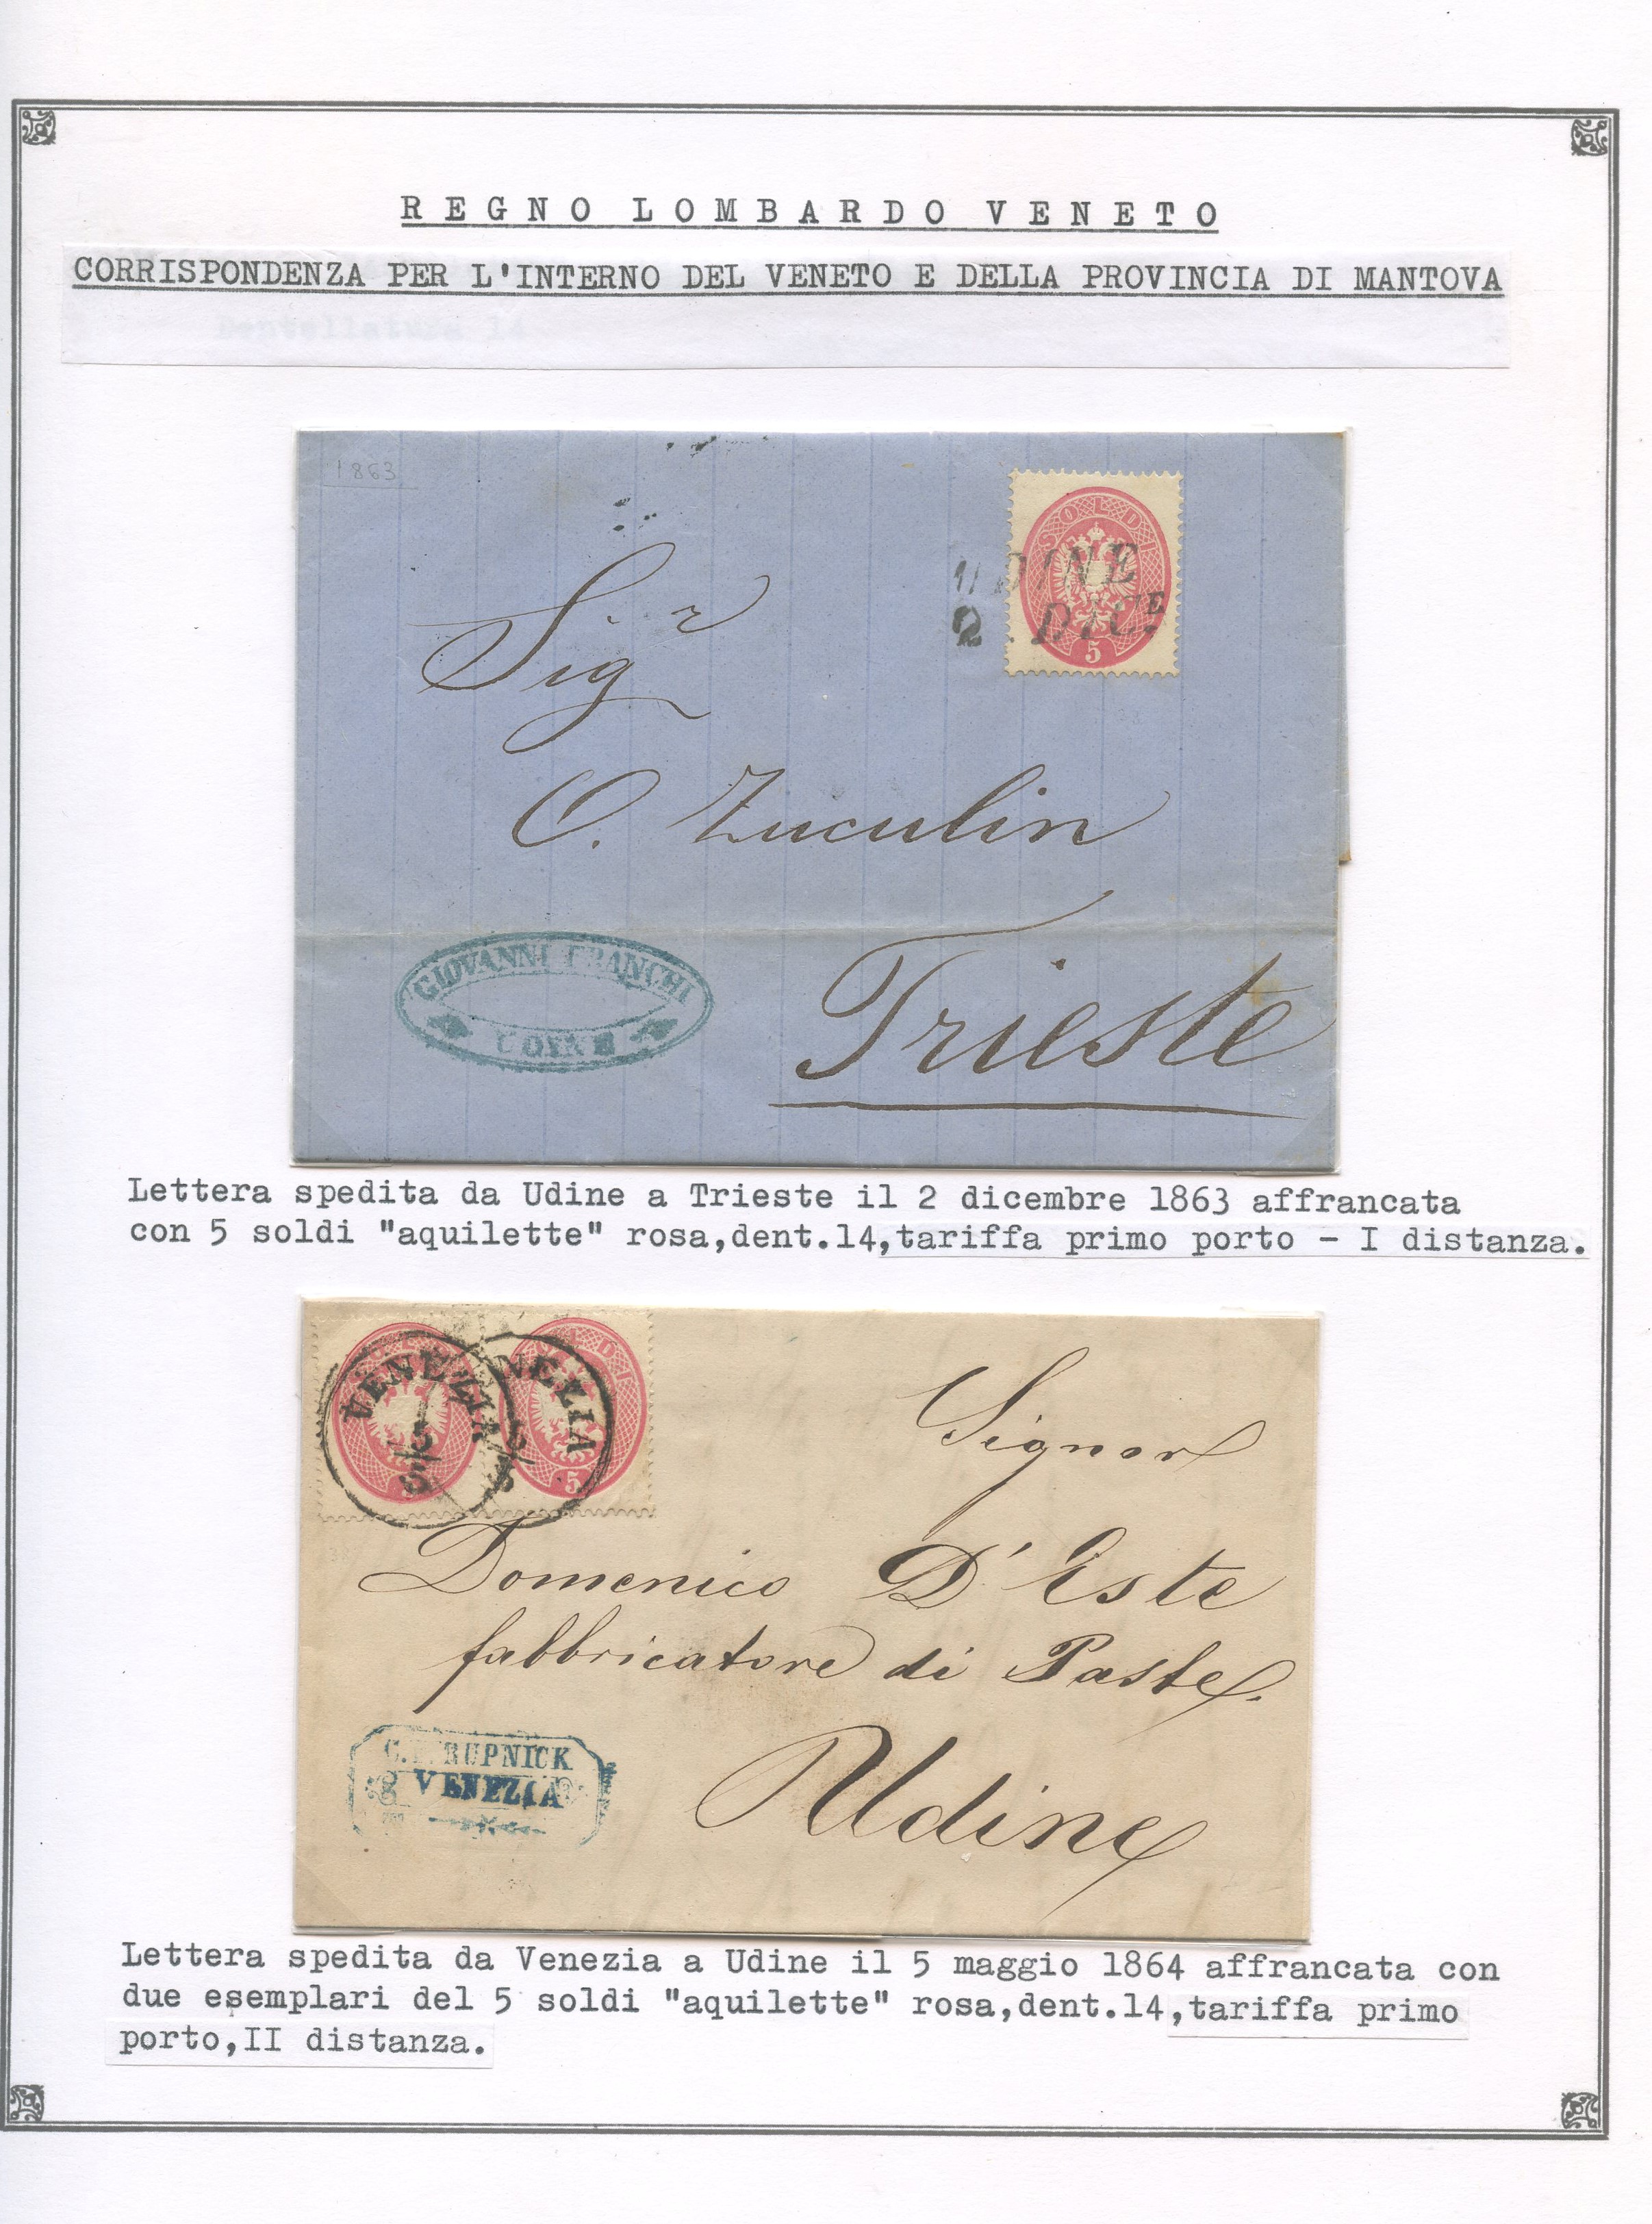 REGNO LOMBARDO VENETO
CORRISPONDENZA PER L'INTERNO DEL VENETO E DELLA PROVINCIA DI MANTOVA
Dentellatura 14
1863
SOLDI
UDINE
2. DIC.E
5
Sigr
C. Zuculin
GIOVANNI FRANCHI
UDINE
Trieste
Lettera spedita da Udine a Trieste il 2 dicembre 1863 affrancata
con 5 soldi "aquilette" rosa,dent.14,tariffa primo porto - I distanza.
VENEZIA
5/5
NEZIA
5
5
Signor
Domenico D'Este
fabbricatore di Paste.
RUPNICK
VENEZIA
Udine
Lettera spedita da Venezia a Udine il 5 maggio 1864 affrancata con
due esemplari del 5 soldi "aquilette" rosa,dent.14,tariffa primo
porto,II distanza.